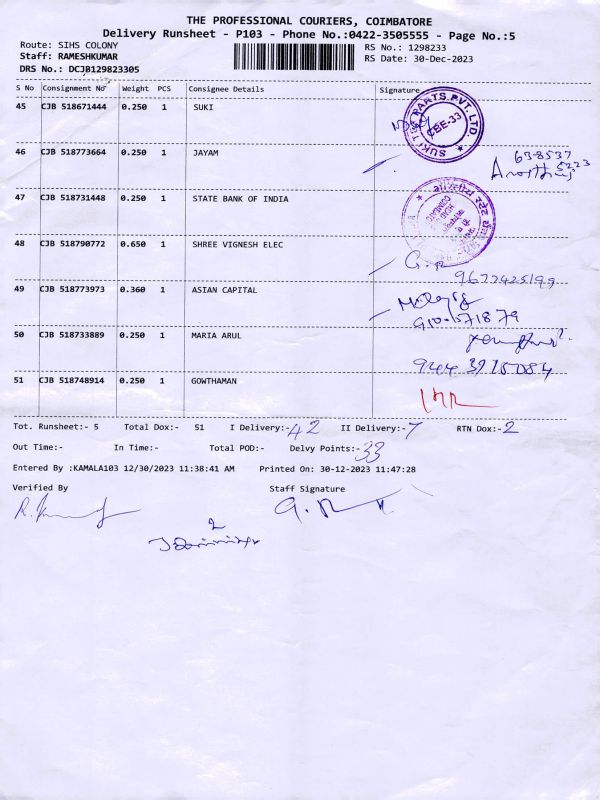 THE PROFESSIONAL COURIERS, COIMBATORE
Delivery Runsheet - P103 - Phone No.:0422-3505555 - Page No.:5
Route: SIHS COLONY
RS No.: 1298233
Staff: RAMESHKUMAR
RS Date: 30-Dec-2023
DRS No.: DCJB129823305
S No Consignment No Weight PCS Consignee Details Signature
45 CJB 518671444 0.250 1 SUKI
CBE-33
46 CJB 518773664 0.250 1 JAYAM
47 CJB 518731448 0.250 1 STATE BANK OF INDIA
48 CJB 518790772 0.650 1 SHREE VIGNESH ELEC
G. R
9677425199
49 CJB 518773973 0.360 1 ASIAN CAPITAL
50 CJB 518733889 0.250 1 MARIA ARUL
51 CJB 518748914 0.250 1 GOWTHAMAN
Tot. Runsheet:- 5 Total Dox:- 51 I Delivery:- 42 II Delivery:- 7 RTN Dox:- 2
Out Time:- In Time:- Total POD:- Delvy Points:- 33
Entered By :KAMALA103 12/30/2023 11:38:41 AM Printed On: 30-12-2023 11:47:28
Verified By Staff Signature